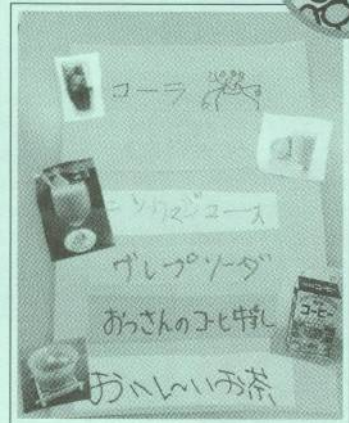 コーラ
ジュース
グレプソーダ
おっさんのコーヒ牛乳
コーヒー
おいし〜いお茶